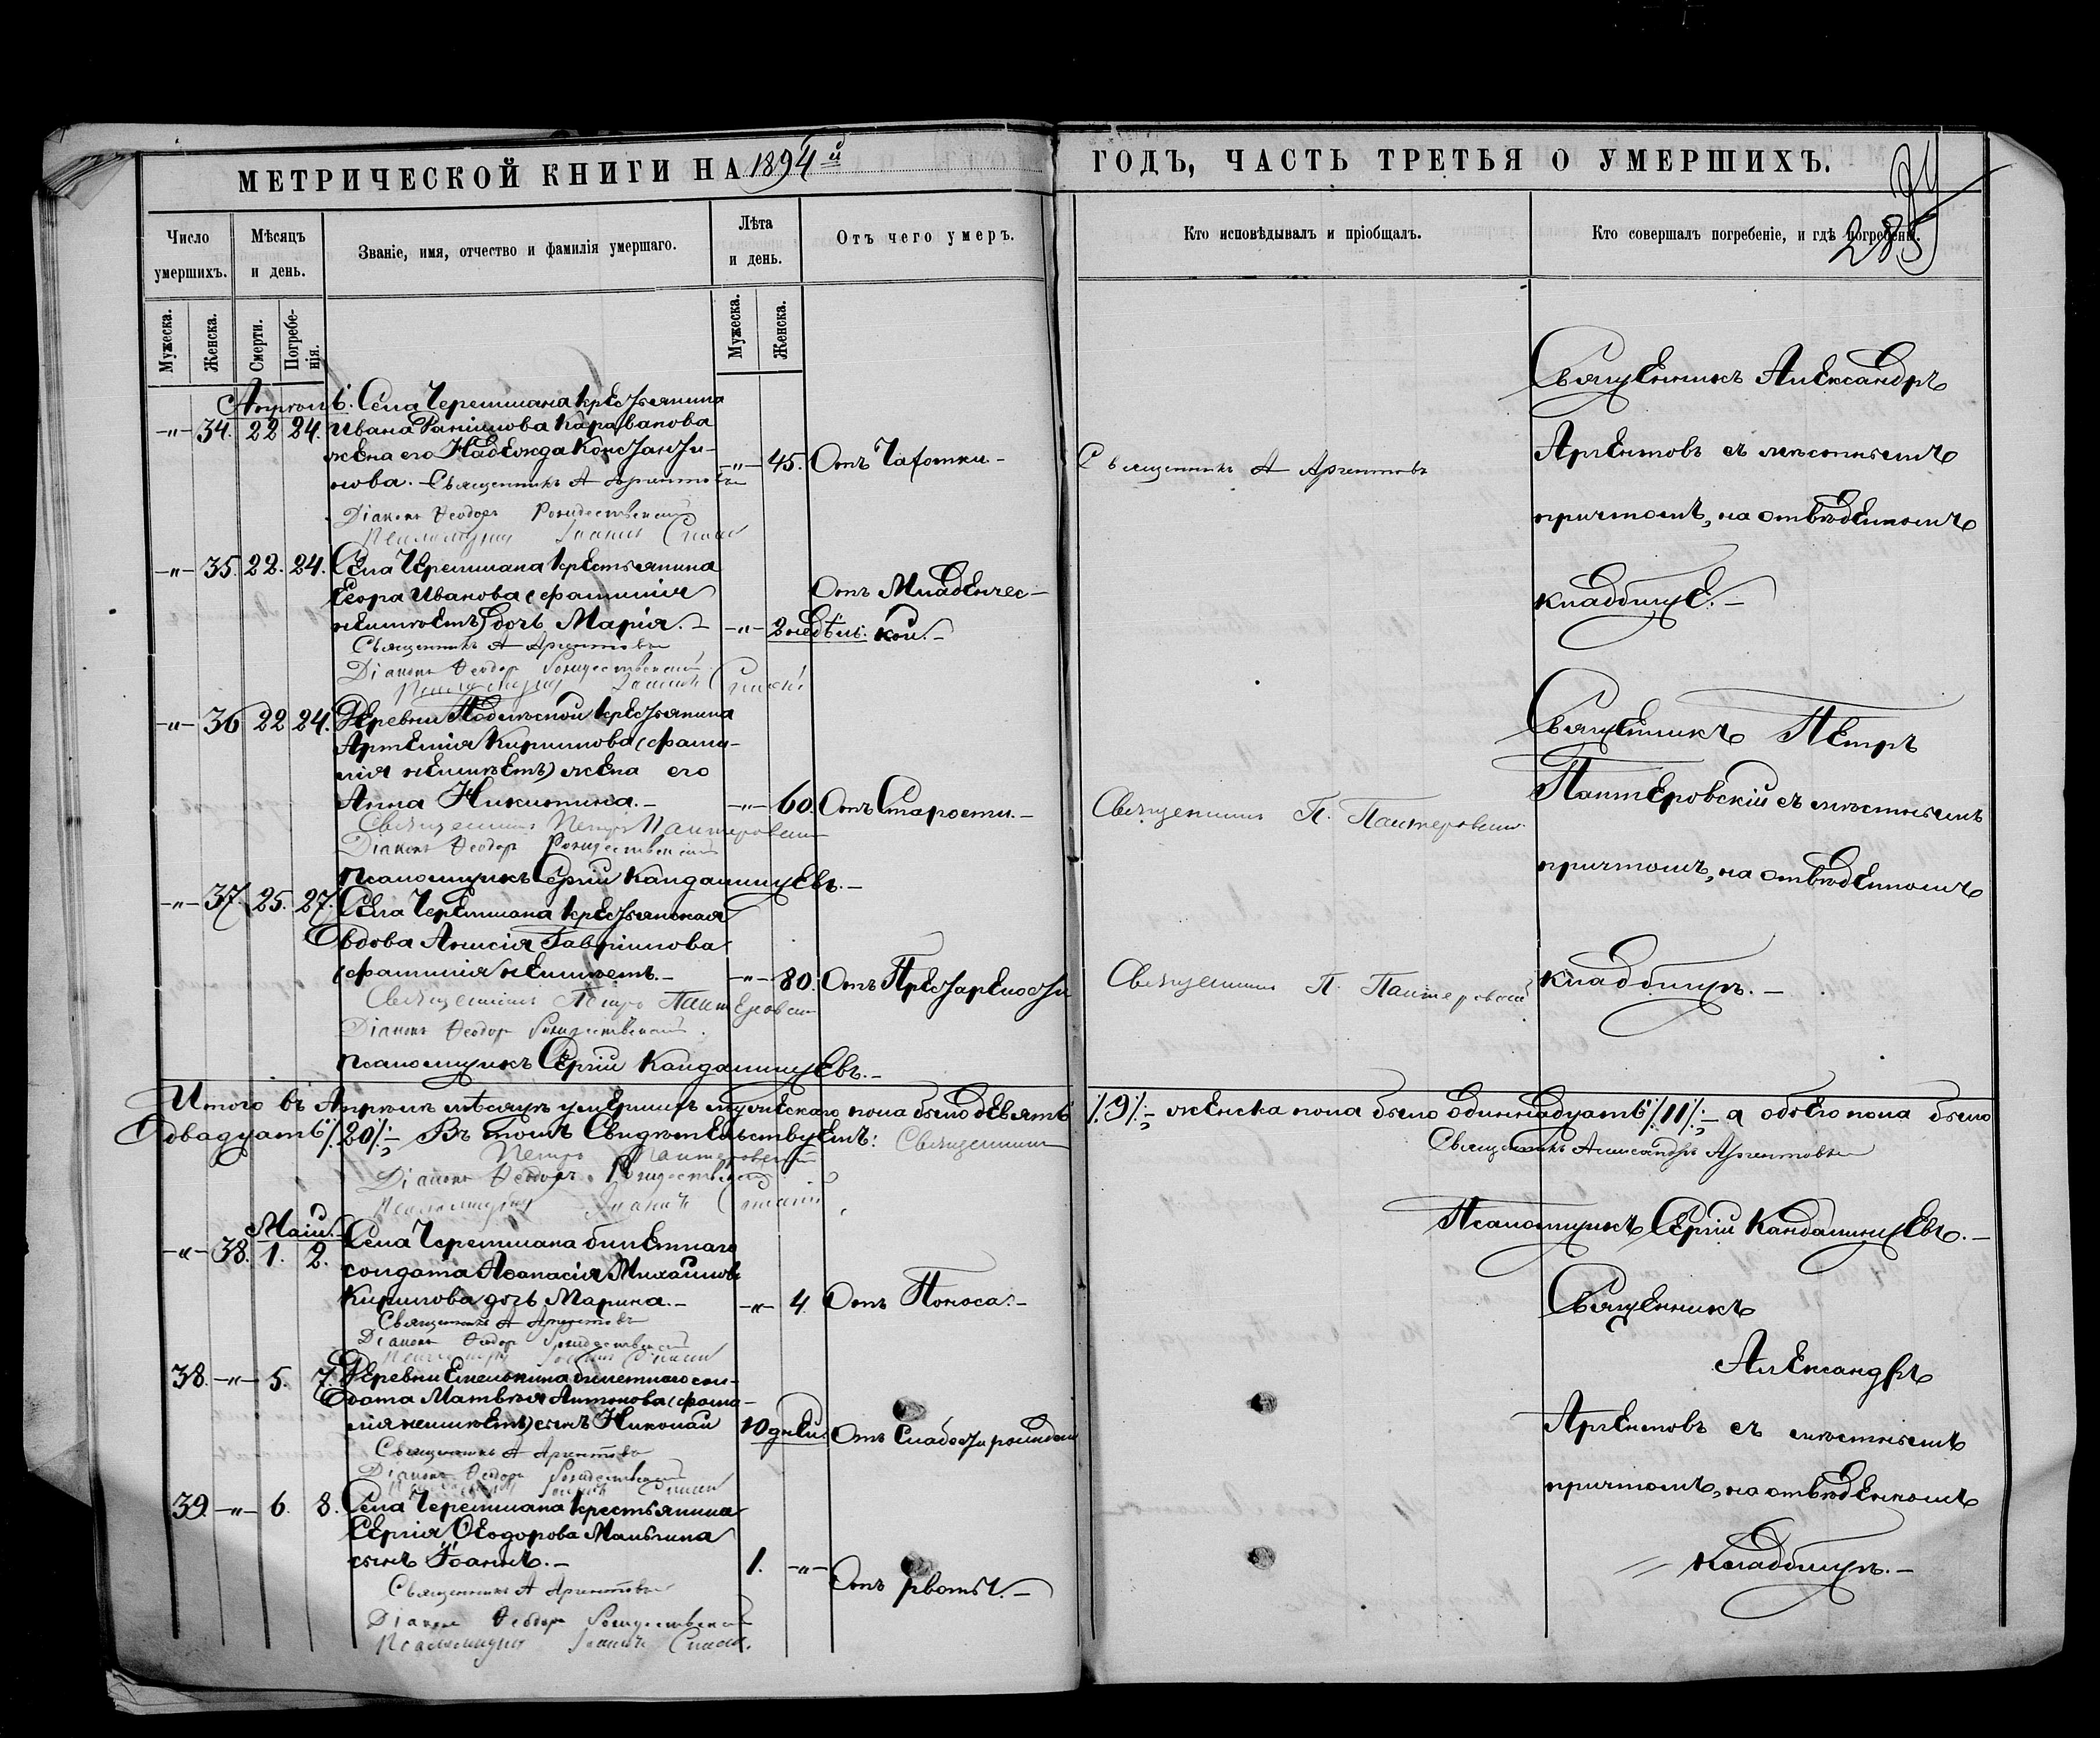 МЕТРИЧЕСКОЙ КНИГИ НА 1894й ГОДЪ, ЧАСТЬ ТРЕТЬЯ О УМЕРШИХЪ.
285
Число умершихъ.
Мѣсяцъ и день.
Званіе, имя, отчество и фамилія умершаго.
Лѣта и день.
Отъ чего умеръ.
Кто исповѣдывалъ и пріобщалъ.
Кто совершалъ погребеніе, и гдѣ погребены.
Мужеска.
Женска.
Смерти.
Погребенія.
Мужеска.
Женска.
Апрѣль. Села Черемшана крестьянина
-"- 34. 22 24. Ивана Караванова
жена его Надежда Константи-
нова. - Священникъ А Аргентовъ
-"- 45. Отъ Чахотки. -
Священникъ А Аргентовъ
Діаконъ Ѳеодоръ Рождественскій
Псаломщикъ Іоаннъ
Священникъ Александръ
Аргентовъ съ мѣстнымъ
причтомъ, на отведенномъ
кладбище. -
-"- 35. 22. 24. Села Черемшана крестьянина
Егора Иванова (фамиліи
неимѣетъ) дочь Марія. -
-"- 2 недѣли. Отъ Младенчес-
кой. -
Священникъ А Аргентовъ
Діаконъ Ѳеодоръ Рождественскій
Псаломщикъ Іоаннъ
-"- 36 22 24. Деревни крестьянина
Артемія Кирилова (фами-
лія неимѣетъ) жена его
Анна Никитина. -
-"- 60. Отъ Старости. -
Священникъ П. Пантеровскій
Священникъ Петръ Пантеровскій
Діаконъ Ѳеодоръ Рождественскій
Псаломщикъ Сергій Кандалинцевъ. -
Священникъ Петръ
Пантеровскій съ мѣстнымъ
причтомъ, на отвѣденномъ
кладбищѣ. -
-"- 37. 25. 27. Села Черемшана крестьянская
вдова Анисія Гавріилова
(фамилія неимѣетъ. -
-"- 80. Отъ Престарелости
Священникъ П. Пантеровскій
Священникъ Петръ Пантеровскій
Діаконъ Ѳеодоръ Рождественскій.
Псаломщикъ Сергій Кандалинцевъ. -
Итого въ Апрѣлѣ мѣсяцѣ умершихъ мужескаго пола было девять /:9/:; - женска пола было одиннадцать /:11/:; - а обоего пола было
двадцать /:20/:; - Въ томъ Свидѣтельствуемъ: Священникъ
Петръ Пантеровскій
Священникъ Александръ Аргентовъ
Діаконъ Ѳеодоръ Рождественскій
Псаломщикъ Іоаннъ
Псаломщикъ Сергій Кандалинцевъ. -
Май.
-"- 38. 1. 2. Села Черемшана билетнаго
солдата Аѳанасія Михайлова
Кирилова дочь Марина. -
-"- 4 Отъ Поноса. -
Священникъ А Аргентовъ
Діаконъ Ѳеодоръ Рождественскій
Псаломщикъ Іоаннъ
Священникъ
Александръ
Аргентовъ съ мѣстнымъ
причтомъ, на отвѣденномъ
кладбищѣ. -
38. -"- 5. 7. Деревни Емелькина билетнаго сол-
дата Матвѣя Антонова (фами-
лія неимѣетъ) сынъ Николай
10 дней. Отъ Слабости рожденія
Священникъ А Аргентовъ
Діаконъ Ѳеодоръ Рождественскій
Псаломщикъ Іоаннъ
39. -"- 6. 8. Села Черемшана крестьянина
Сергія Ѳеодорова Малыгина
сынъ Іоаннъ. -
1. -"- Отъ рвоты. -
Священникъ А Аргентовъ
Діаконъ Ѳеодоръ Рождественскій
Псаломщикъ Іоаннъ